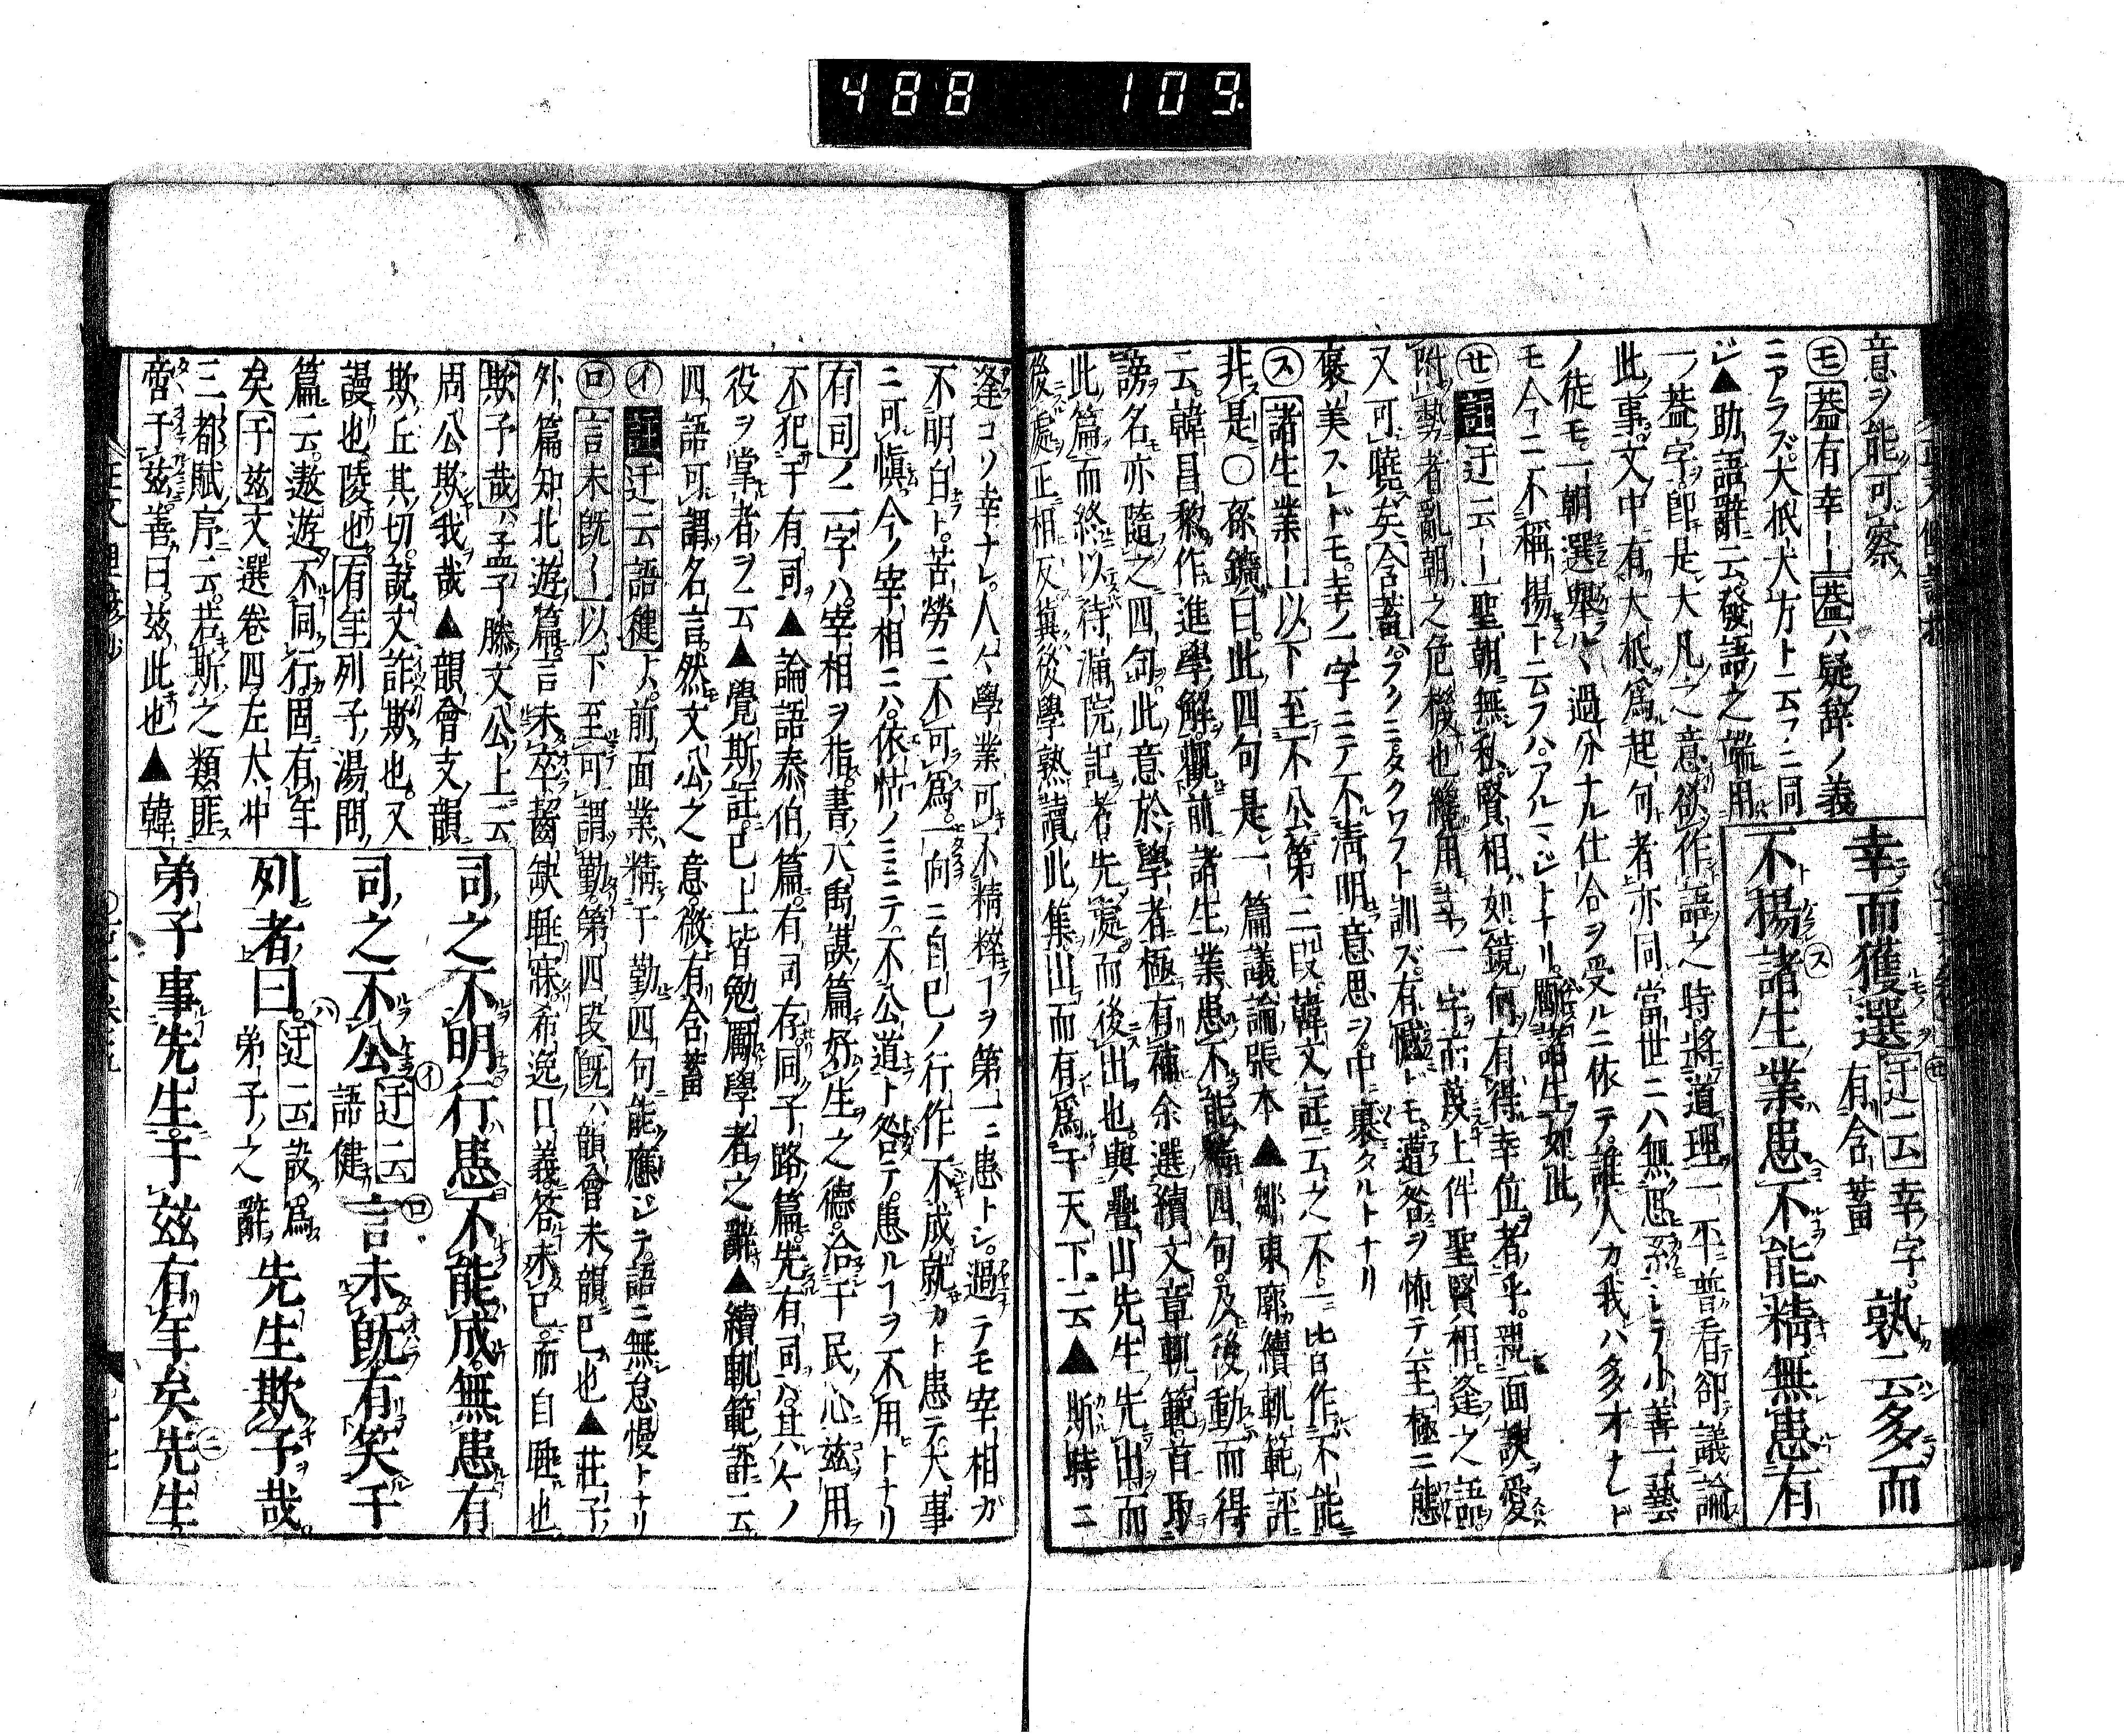 488 109.
意ヲ能可察
㋲蓋有幸ー蓋ハ疑辞ノ義
ニアラズ大抵大方ト云フニ同
ジ▲助語辭云發語之端用
一フ蓋字即是大凡之意欲作語之時將道理一平普看卻議論
此事文中有大抵爲起句者亦同當世ニハ無シテ小善一藝
ノ徒モ一朝選舉ルヽ過分ナル仕合ヲ受ルニ依テ誰人カ我ハ多才ナレド
モ今ニ不稱揚ト云フハアルマジトナリ諸生如此
㋝註迂云ー聖朝無私賢相如鏡何有得幸位者乎親面諛愛
附勢者亂朝之危機也纔用幸一字而蔑上件聖賢相逢之語
又可曉矣含蓄ハフクミタクワフト訓ズ有憾ドモ遭咎ヲ怖テ至極ニ態
褒美スレドモ幸ノ一字ニテ不淸明意思ヲ中ニ裹タルトナリ
㋜諸生業ー以下至不公第三段韓文註云之不一皆作不能
非是〇孫鑛曰此四句是一篇議論張本▲鄒東廓續軌範評
云韓昌黎作進學解觀前諸生業患不能精四句及後動而得
謗名亦隨之四句此意於學者極有補余選續文章軌範首取
此篇而終以待漏院記者先處而後出也與疊山先生先出而
後處正相反冀後學熟讀此集出而有爲于天下云▲斯時ニ
幸而獲選迂云幸字有含蓄孰云多而
不揚諸生業患不能精無患有
逢コソ幸ナレ人々學業可不精粹ヿヲ第一ニ患トシ過テモ宰相ガ
不明白ト苦勞ニ不可爲一向ニ自己ノ行作不成就カト患テ大事
ニ可愼今ノ宰相ニハ依怙ノミニテ不公道ト咎テ患ルヿヲ不用トナリ
有司ノ二字ハ宰相ヲ指書大禹謨篇好生之德洽于民心茲用
不犯于有司▲論語泰伯篇有司存同子路篇先有司ハ其々ノ
役ヲ掌者ヲ云▲覺斯註已上皆勉勵學者之辭▲續軌範評云
四語可謂名言然文公之意微有含蓄
㋑註迂云語健トハ前面業精于勤四句能應ジテ語ニ無怠慢トナリ
㋺言未旣ー以下至可謂勤第四段旣ハ韻會未韻已也▲莊子
外篇知北遊篇言未卒齧缺睡寐希逸口義答未已而自睡也
欺予哉ハ孟子滕文公上云
周公欺我哉▲韻會支韻
欺丘其切說文詐欺也又
謾也陵也有年列子湯問
篇云遨遊不同行固有年
矣于茲文選卷四左太冲
三都賦序云若斯之類匪
啻于茲善曰茲此也▲韓
司之不明行患不能成無患有
司之不公迂云語健言未旣有笑于
列者曰迂云設爲弟子之辭先生欺予哉
弟子事先生于茲有年矣先生